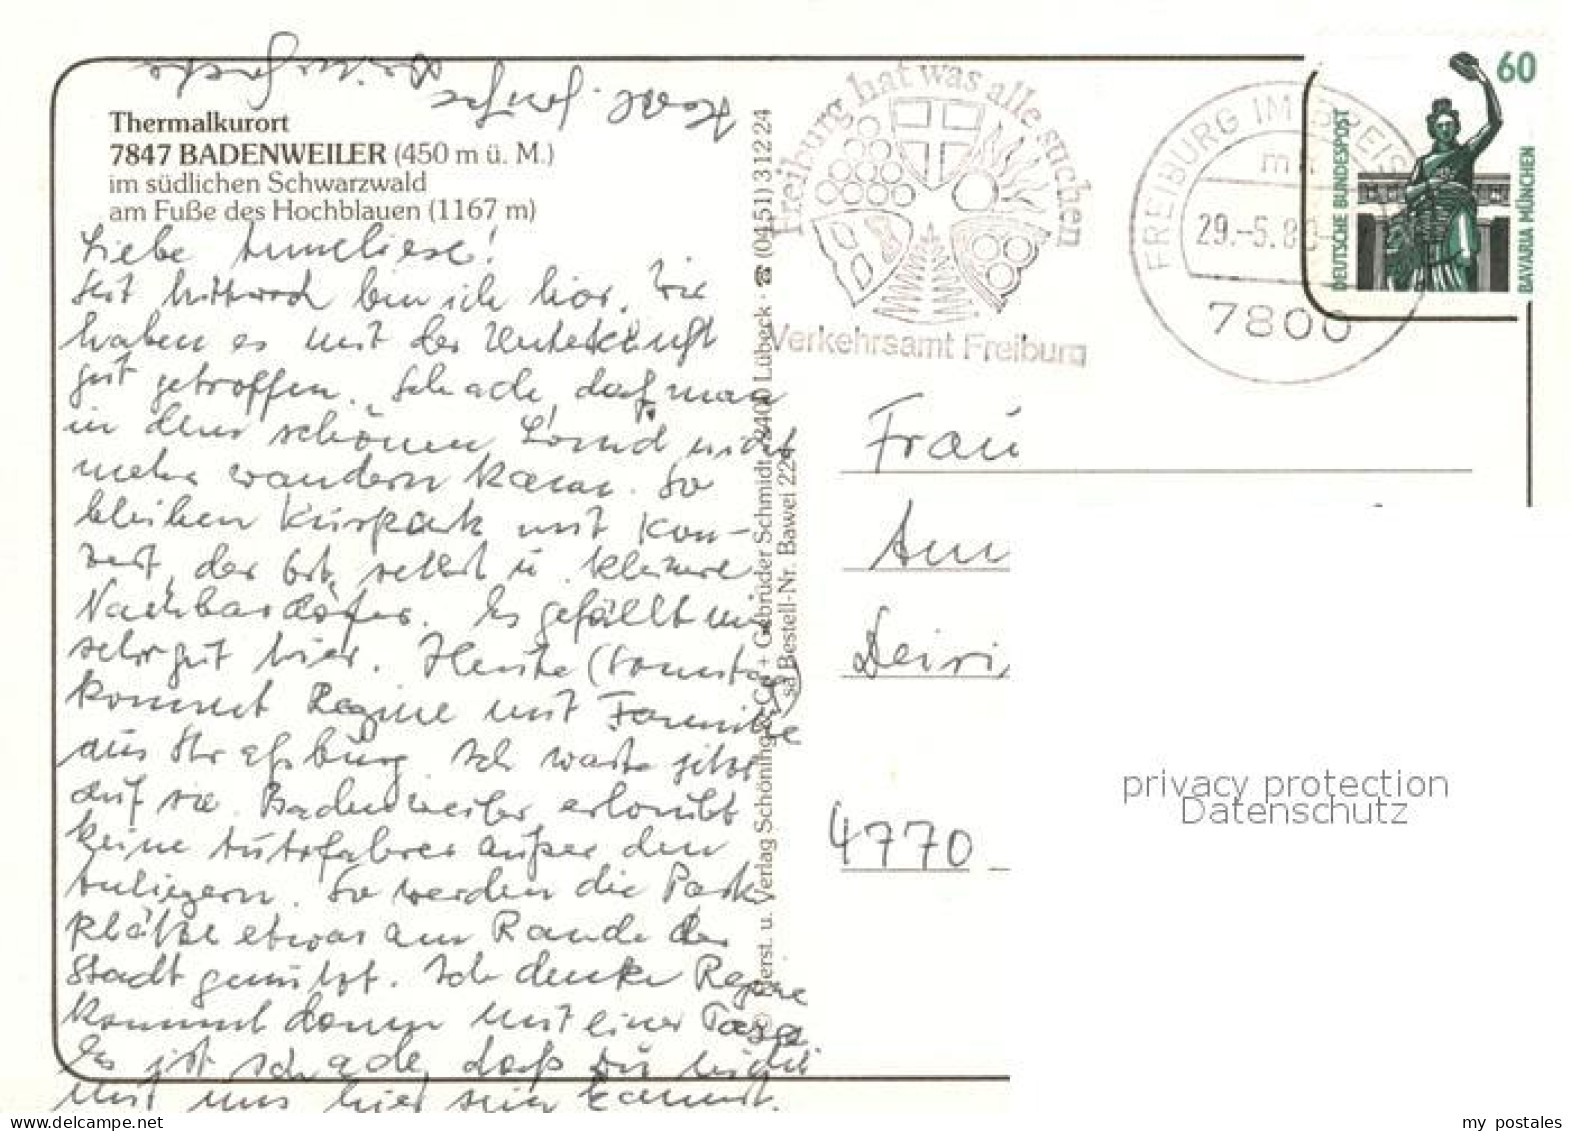 Thermalkurort
7847 BADENWEILER (450 m ü. M.)
im südlichen Schwarzwald
am Fuße des Hochblauen (1167 m)
Liebe Anneliese!
Seit Mittwoch bin ich hier. Wir
haben es mit der Unterkunft
gut getroffen. Schade, daß man
in dem schönen Land nicht
mehr wandern kann. So
bleiben Kurpark mit Kon-
zert, der Ort selbst u. kleinere
Nachbardörfer. Es gefällt mir
sehr gut hier. Heute (Sonntag)
kommt Regine mit Familie
aus Straßburg. Ich warte jetzt
auf sie. Badenweiler erlaubt
keine Autofahrer außer den
Anliegern. So werden die Park-
plätze etwas am Rande der
Stadt genützt. Ich denke Regine
kommt dann mit einer Taxe
Es ist schade, daß du nicht
mit uns hier sein kannst.
Herzl.
© Herst. u. Verlag Schöning & Co + Gebrüder Schmidt · 2400 Lübeck · ☎ (04 51) 3 12 24
sa Bestell-Nr. Bawei 224
Freiburg hat was alle suchen
Verkehrsamt Freiburg
FREIBURG IM BREIS
29.-5.8
7800
60
DEUTSCHE BUNDESPOST
BAVARIA MÜNCHEN
Frau
Ann
4770
privacy protection
Datenschutz
www.delcampe.net
my_postales